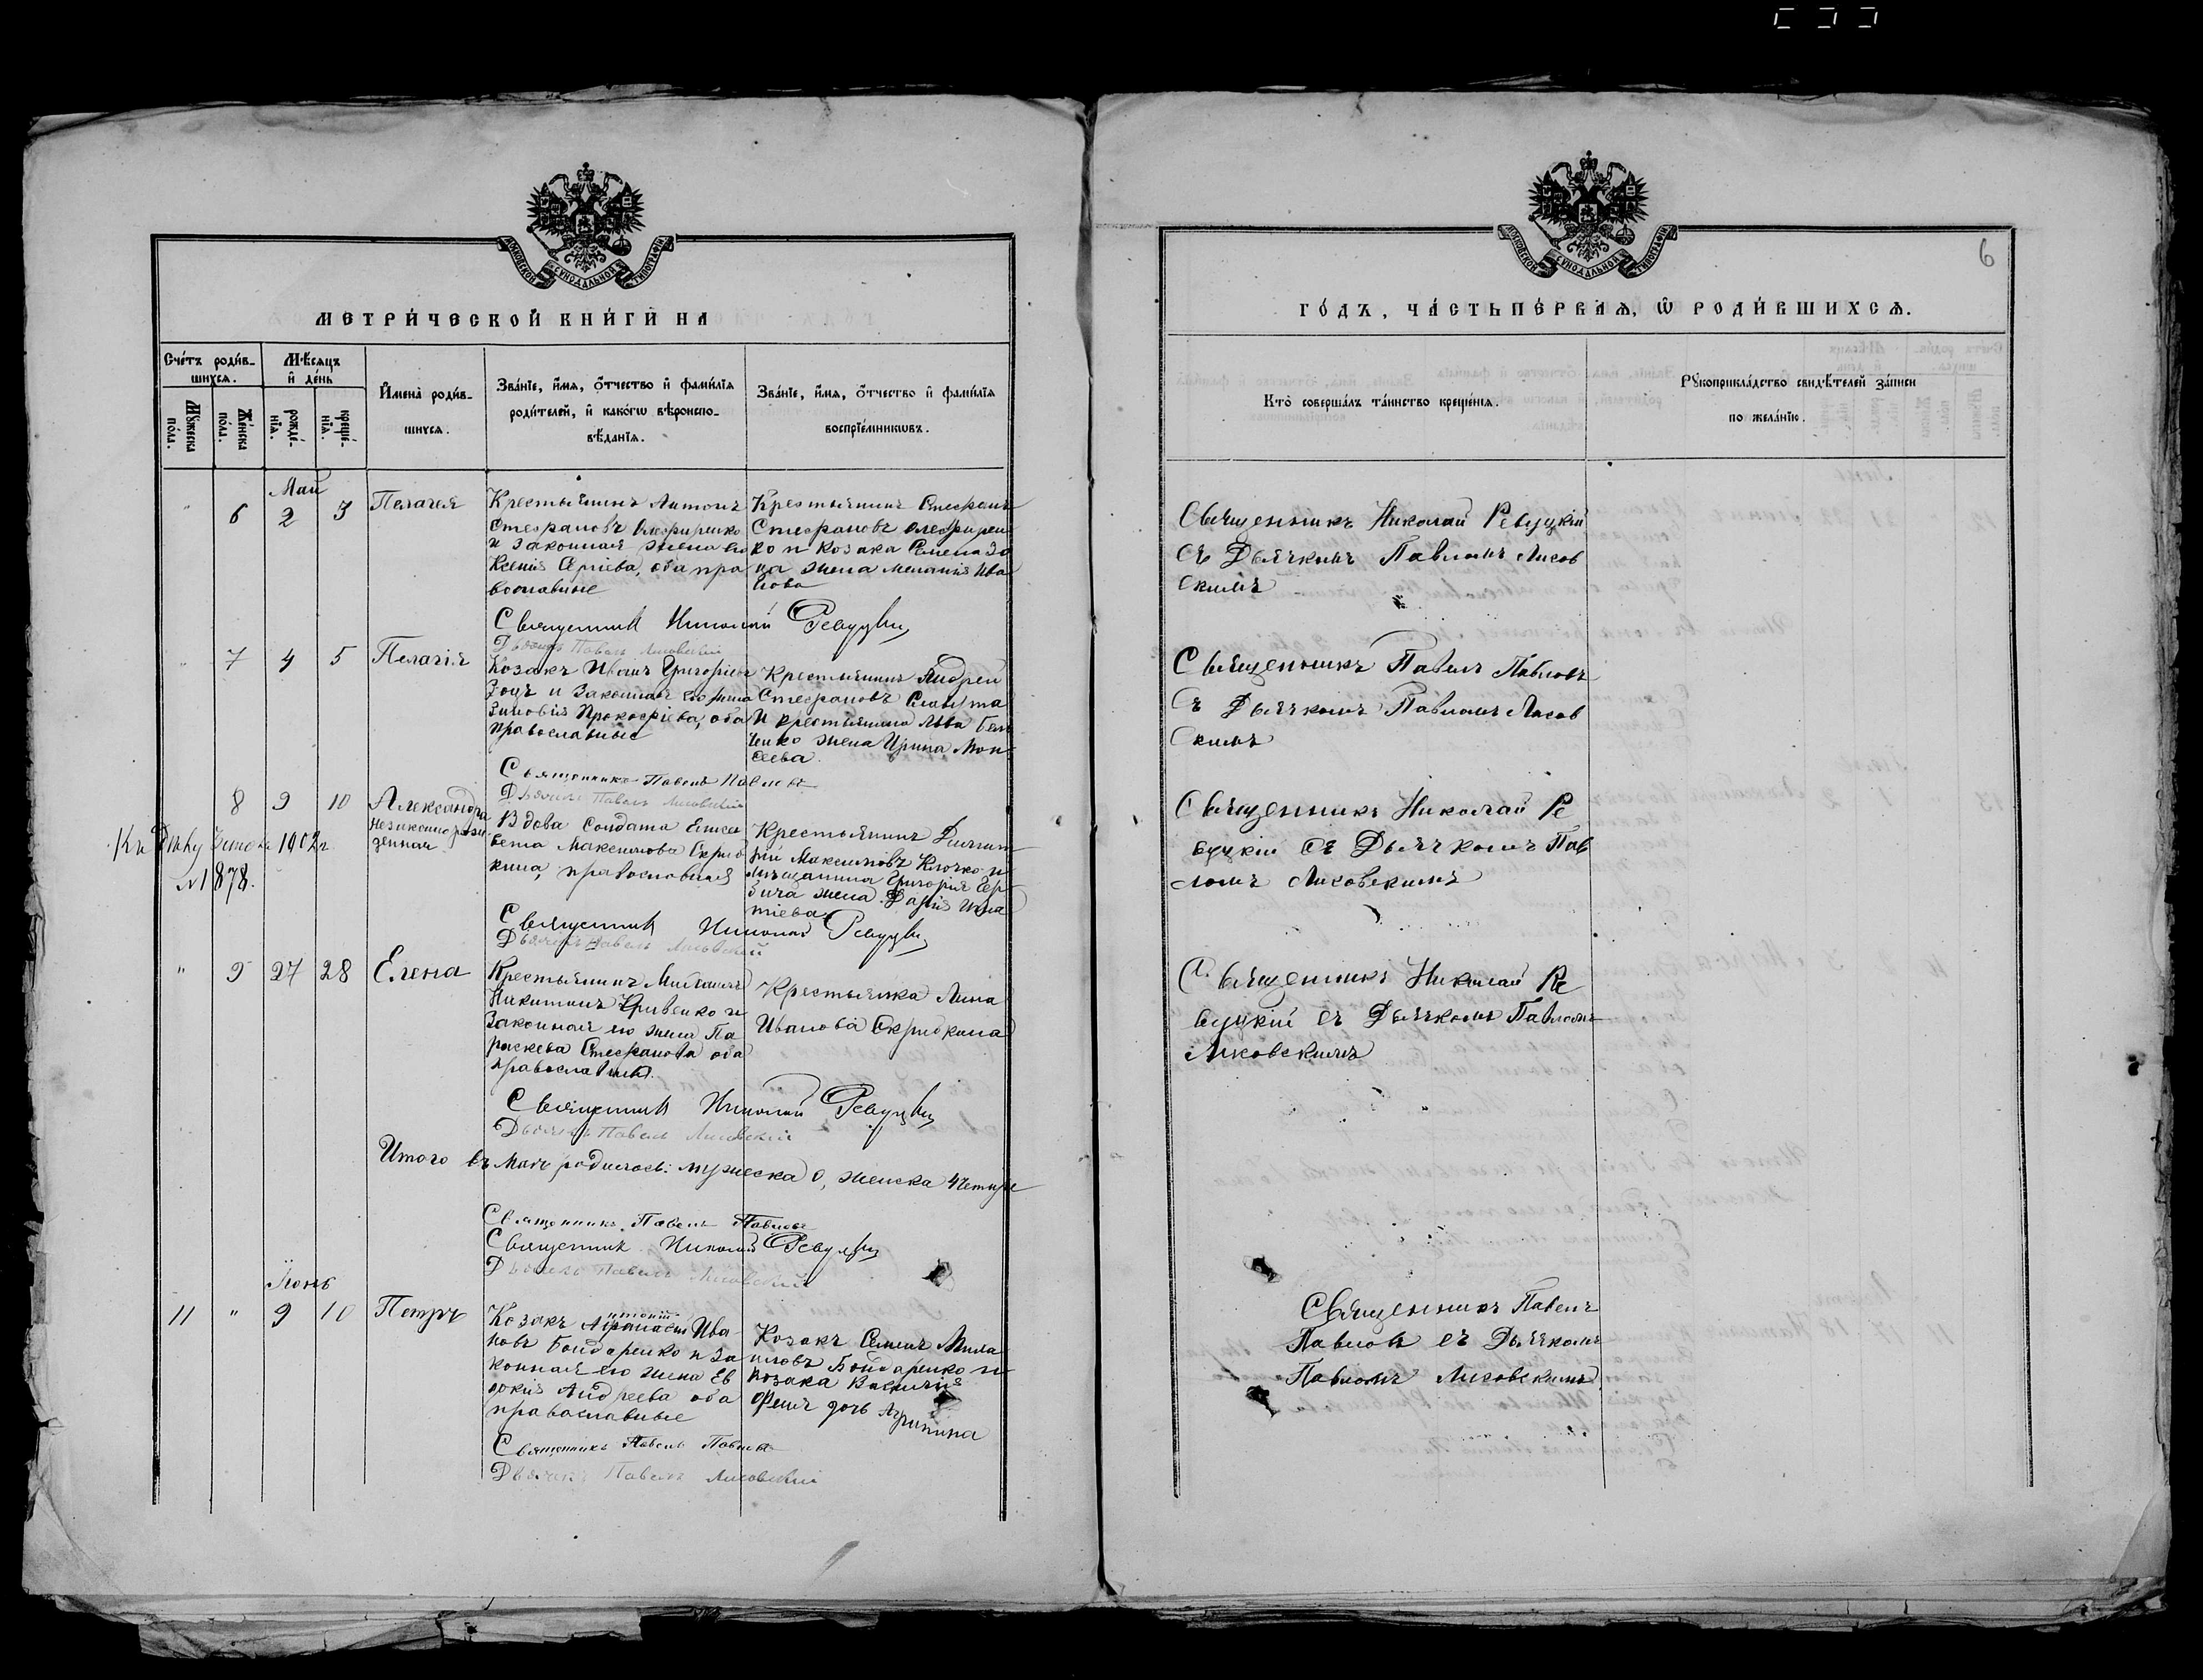 МОСКОВСКОЙ СѴНОДАЛЬНОЙ ТИПОГРАФІИ
МЕТРИ́ЧЕСКОЙ КНИ́ГИ НА
Сче́тъ роди́в-
шихсѧ.
Мꙋ́жеска
по́ла.
Же́нска
по́ла.
Мѣ́сѧцъ
и҆ де́нь
рожде́-
нїѧ.
креще́-
нїѧ.
И҆мена̀ роди́в-
шихсѧ.
Зва́нїе, и҆́мѧ, ѻ҆́тчество и҆ фами́лїѧ
роди́телей, и҆ како́гѡ вѣроиспо-
вѣ́данїѧ.
Зва́нїе, и҆́мѧ, ѻ҆́тчество и҆ фами́лїѧ
воспрїе́мникѡвъ.
Май
" 6 2 3 Пелагея
Крестьянинъ Антонъ
Стефановъ Олефиренко
и законная жена его
Ксенія Сергіева, оба пра
вославные
Крестьянинъ Стефанъ
Стефановъ Олефирен
ко и козака Семена Зо
ца жена Меланія Ива
нова
Священникъ Николай Ревуцкій
Дьячекъ Павелъ Лисовскій
" 7 4 5 Пелагія
Козакъ Иванъ Григорьевъ
Зоцъ и законная его жена
Зиновія Прокофіева, оба
православные
Крестьянинъ Андрей
Стефановъ
и крестьянина Льва
жена Ирина Мои
сеева.
Священникъ Павелъ Павловъ
Дьячекъ Павелъ Лисовскій
8 9 10 Александра
незаконно рож
денная
Къ Дѣлу 1902 г.
№ 1878.
Вдова солдата Елиса
вета Максимова Скриб
кина, православная
Крестьянинъ Димит
рій Максимовъ Клочко и
мѣщанина Григорія
жена Дарія Игна
тіева
Священникъ Николай Ревуцкій
Дьячекъ Павелъ Лисовскій
" 9 27 28 Елена
Крестьянинъ
Никитинъ Кривенко и
законная его жена Па
раскева Стефанова оба
православные.
Крестьянка Анна
Иванова Скрибкина
Священникъ Николай Ревуцкій
Дьячекъ Павелъ Лисовскій
Итого въ Маѣ родилось: мужеска 0, женска 4 четыре
Священникъ Павелъ Павловъ
Священникъ Николай Ревуцкій
Дьячекъ Павелъ Лисовскій
Іюнь
11 " 9 10 Петръ
Козакъ Афанасій Ива
новъ Бондаренко и за
конная его жена Ев
докія Андреева оба
православные
Козакъ Семенъ Миха
иловъ Бондаренко и
козака Василія
дочь Агрипина
Священникъ Павелъ Павловъ
Дьячекъ Павелъ Лисовскій
6
МОСКОВСКОЙ СѴНОДАЛЬНОЙ ТИПОГРАФІИ
ГО́ДЪ, ЧА́СТЬ ПЕ́РВАѦ, Ѡ҆ РОДИ́ВШИХСѦ.
Кто̀ соверша́лъ та́инство креще́нїѧ.
Рꙋкоприкла́дство свидѣ́телей за́писи
по жела́нїю.
Священникъ Николай Ревуцкій
съ Дьячкомъ Павломъ Лисов
скимъ
Священникъ Павелъ Павловъ
съ Дьячкомъ Павломъ Лисов
скимъ
Священникъ Николай Ре
вуцкій съ Дьячкомъ Пав
ломъ Лисовскимъ
Священникъ Николай Ре
вуцкій съ Дьячкомъ Павломъ
Лисовскимъ
Священникъ Павелъ
Павловъ съ Дьячкомъ
Павломъ Лисовскимъ.